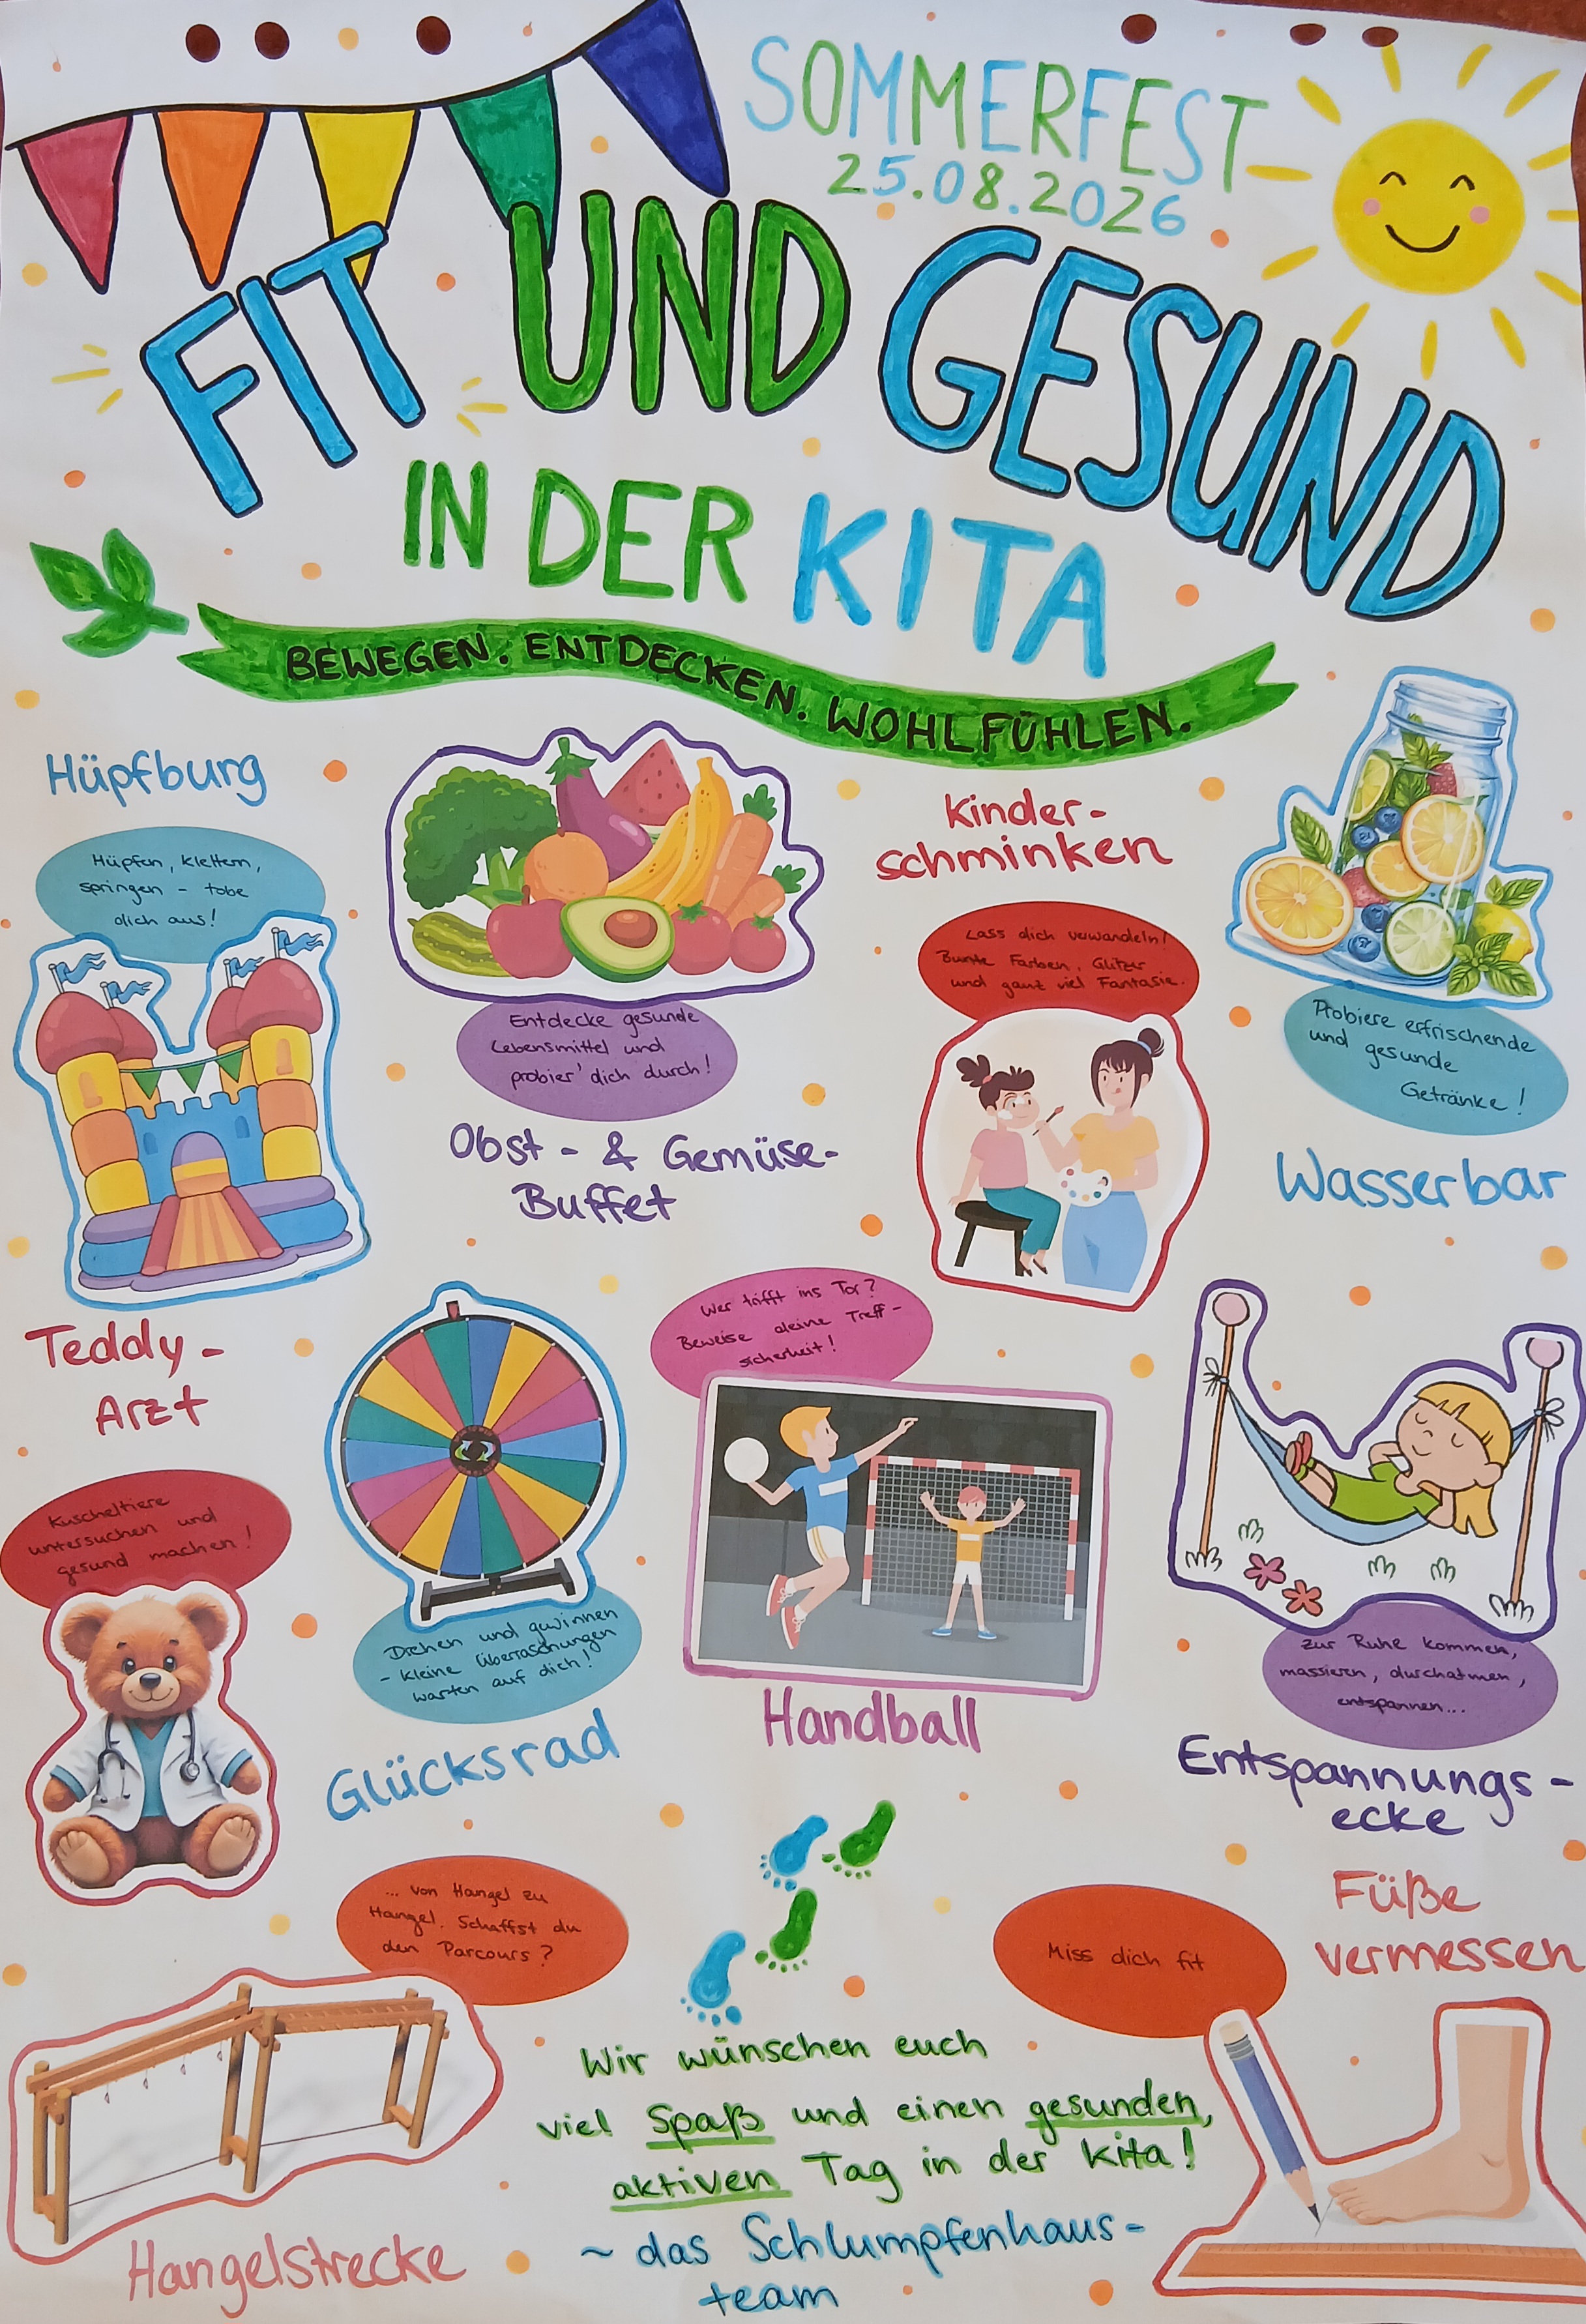 SOMMERFEST
25.08.2026
FIT UND GESUND
IN DER KITA
BEWEGEN. ENTDECKEN. WOHLFÜHLEN.
Hüpfburg
Hüpfen, klettern,
springen - tobe
dich aus!
Entdecke gesunde
Lebensmittel und
probier' dich durch!
Obst- & Gemüse-
Buffet
Kinder-
schminken
Lass dich verwandeln!
Bunte Farben, Glitzer
und ganz viel Fantasie.
Probiere erfrischende
und gesunde
Getränke!
Wasserbar
Teddy-
Arzt
Kuscheltiere
untersuchen und
gesund machen!
Drehen und gewinnen
- kleine Überraschungen
warten auf dich!
Glücksrad
Wer trifft ins Tor?
Beweise deine Treff-
sicherheit!
Handball
Zur Ruhe kommen,
massieren, durchatmen,
entspannen...
Entspannungs-
ecke
... von Hangel zu
Hangel. Schaffst du
den Parcours?
Hangelstrecke
Miss dich fit
Füße
vermessen
Wir wünschen euch
viel Spaß und einen gesunden,
aktiven Tag in der Kita!
~ das Schlumpfenhaus-
team